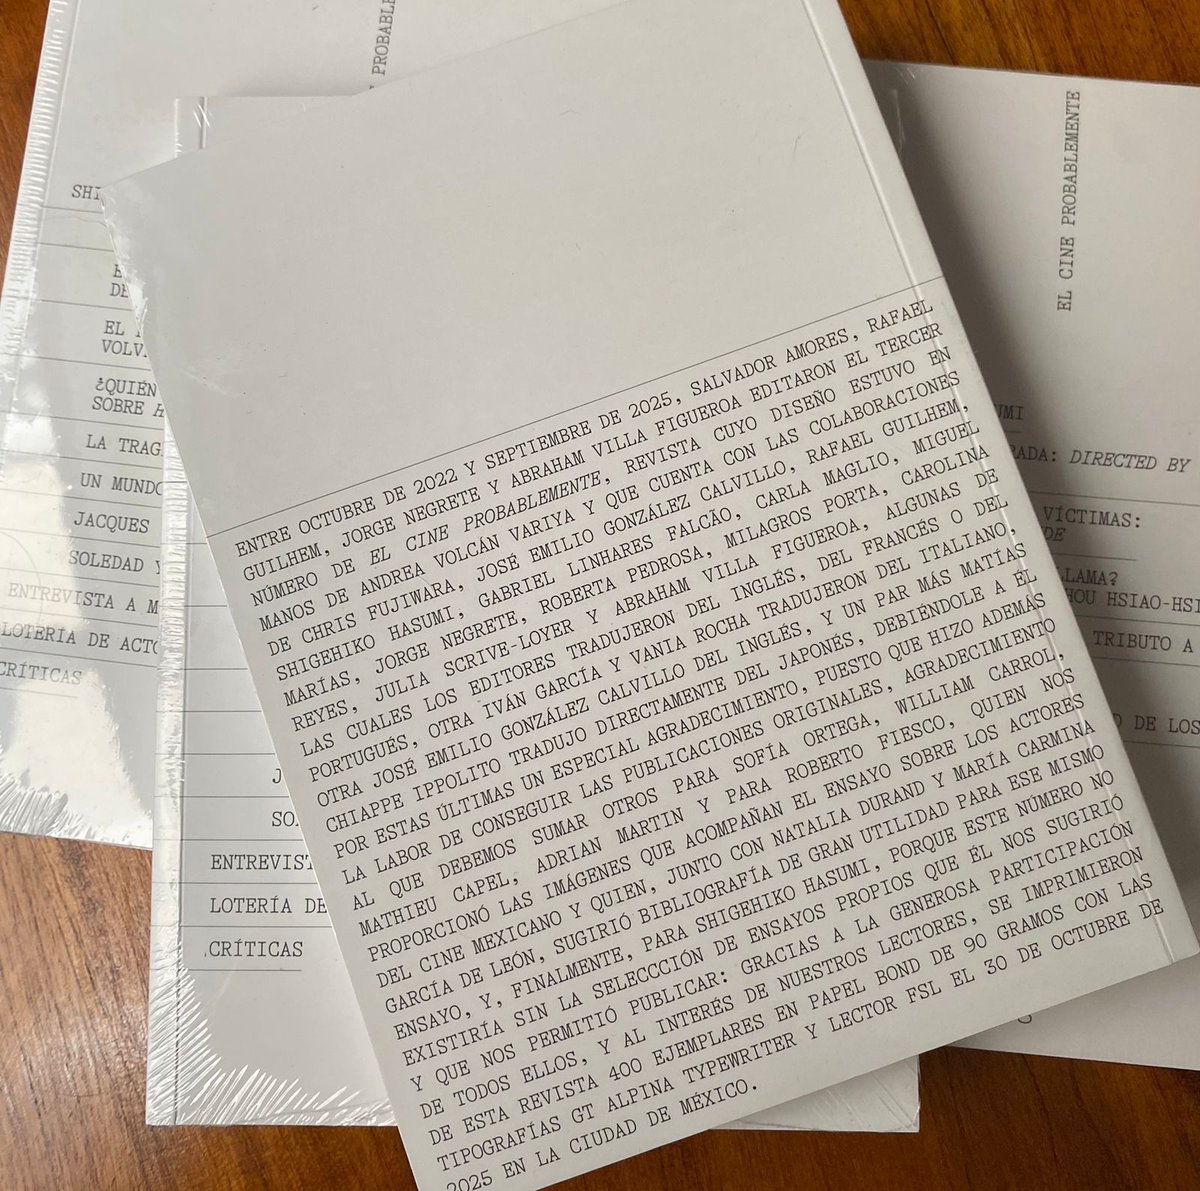 PROBABLE
SHI
E
DE
EL
VOLV
¿QUIÉN
SOBRE H
LA TRAG
UN MUNDO
JACQUES
SOLEDAD Y
ENTREVISTA A M
LOTERÍA DE ACTO
CRÍTICAS
J
SO
ENTREVIST
LOTERÍA DE
CRÍTICAS
ENTRE OCTUBRE DE 2022 Y SEPTIEMBRE DE 2025, SALVADOR AMORES, RAFAEL
GUILHEM, JORGE NEGRETE Y ABRAHAM VILLA FIGUEROA EDITARON EL TERCER
NÚMERO DE EL CINE PROBABLEMENTE, REVISTA CUYO DISEÑO ESTUVO EN
MANOS DE ANDREA VOLCÁN VARIYA Y QUE CUENTA CON LAS COLABORACIONES
DE CHRIS FUJIWARA, JOSÉ EMILIO GONZÁLEZ CALVILLO, RAFAEL GUILHEM,
SHIGEHIKO HASUMI, GABRIEL LINHARES FALCÃO, CARLA MAGLIO, MIGUEL
MARÍAS, JORGE NEGRETE, ROBERTA PEDROSA, MILAGROS PORTA, CAROLINA
REYES, JULIA SCRIVE-LOYER Y ABRAHAM VILLA FIGUEROA, ALGUNAS DE
LAS CUALES LOS EDITORES TRADUJERON DEL INGLÉS, DEL FRANCÉS O DEL
PORTUGUÉS, OTRA IVÁN GARCÍA Y VANIA ROCHA TRADUJERON DEL ITALIANO,
OTRA JOSÉ EMILIO GONZÁLEZ CALVILLO DEL INGLÉS, Y UN PAR MÁS MATÍAS
CHIAPPE IPPOLITO TRADUJO DIRECTAMENTE DEL JAPONÉS, DEBIÉNDOLE A ÉL
POR ESTAS ÚLTIMAS UN ESPECIAL AGRADECIMIENTO, PUESTO QUE HIZO ADEMÁS
LA LABOR DE CONSEGUIR LAS PUBLICACIONES ORIGINALES, AGRADECIMIENTO
AL QUE DEBEMOS SUMAR OTROS PARA SOFÍA ORTEGA, WILLIAM CARROL,
MATHIEU CAPEL, ADRIAN MARTIN Y PARA ROBERTO FIESCO, QUIEN NOS
PROPORCIONÓ LAS IMÁGENES QUE ACOMPAÑAN EL ENSAYO SOBRE LOS ACTORES
DEL CINE MEXICANO Y QUIEN, JUNTO CON NATALIA DURAND Y MARÍA CARMINA
GARCÍA DE LEÓN, SUGIRIÓ BIBLIOGRAFÍA DE GRAN UTILIDAD PARA ESE MISMO
ENSAYO, Y, FINALMENTE, PARA SHIGEHIKO HASUMI, PORQUE ESTE NÚMERO NO
EXISTIRÍA SIN LA SELECCCIÓN DE ENSAYOS PROPIOS QUE ÉL NOS SUGIRIÓ
Y QUE NOS PERMITIÓ PUBLICAR: GRACIAS A LA GENEROSA PARTICIPACIÓN
DE TODOS ELLOS, Y AL INTERÉS DE NUESTROS LECTORES, SE IMPRIMIERON
DE ESTA REVISTA 400 EJEMPLARES EN PAPEL BOND DE 90 GRAMOS CON LAS
TIPOGRAFÍAS GT ALPINA TYPEWRITER Y LECTOR FSL EL 30 DE OCTUBRE DE
2025 EN LA CIUDAD DE MÉXICO.
EL CINE PROBABLEMENTE
UMI
RADA: DIRECTED BY
VÍCTIMAS:
DE
LLAMA?
HOU HSIAO-HSI
TRIBUTO A
D DE LOS